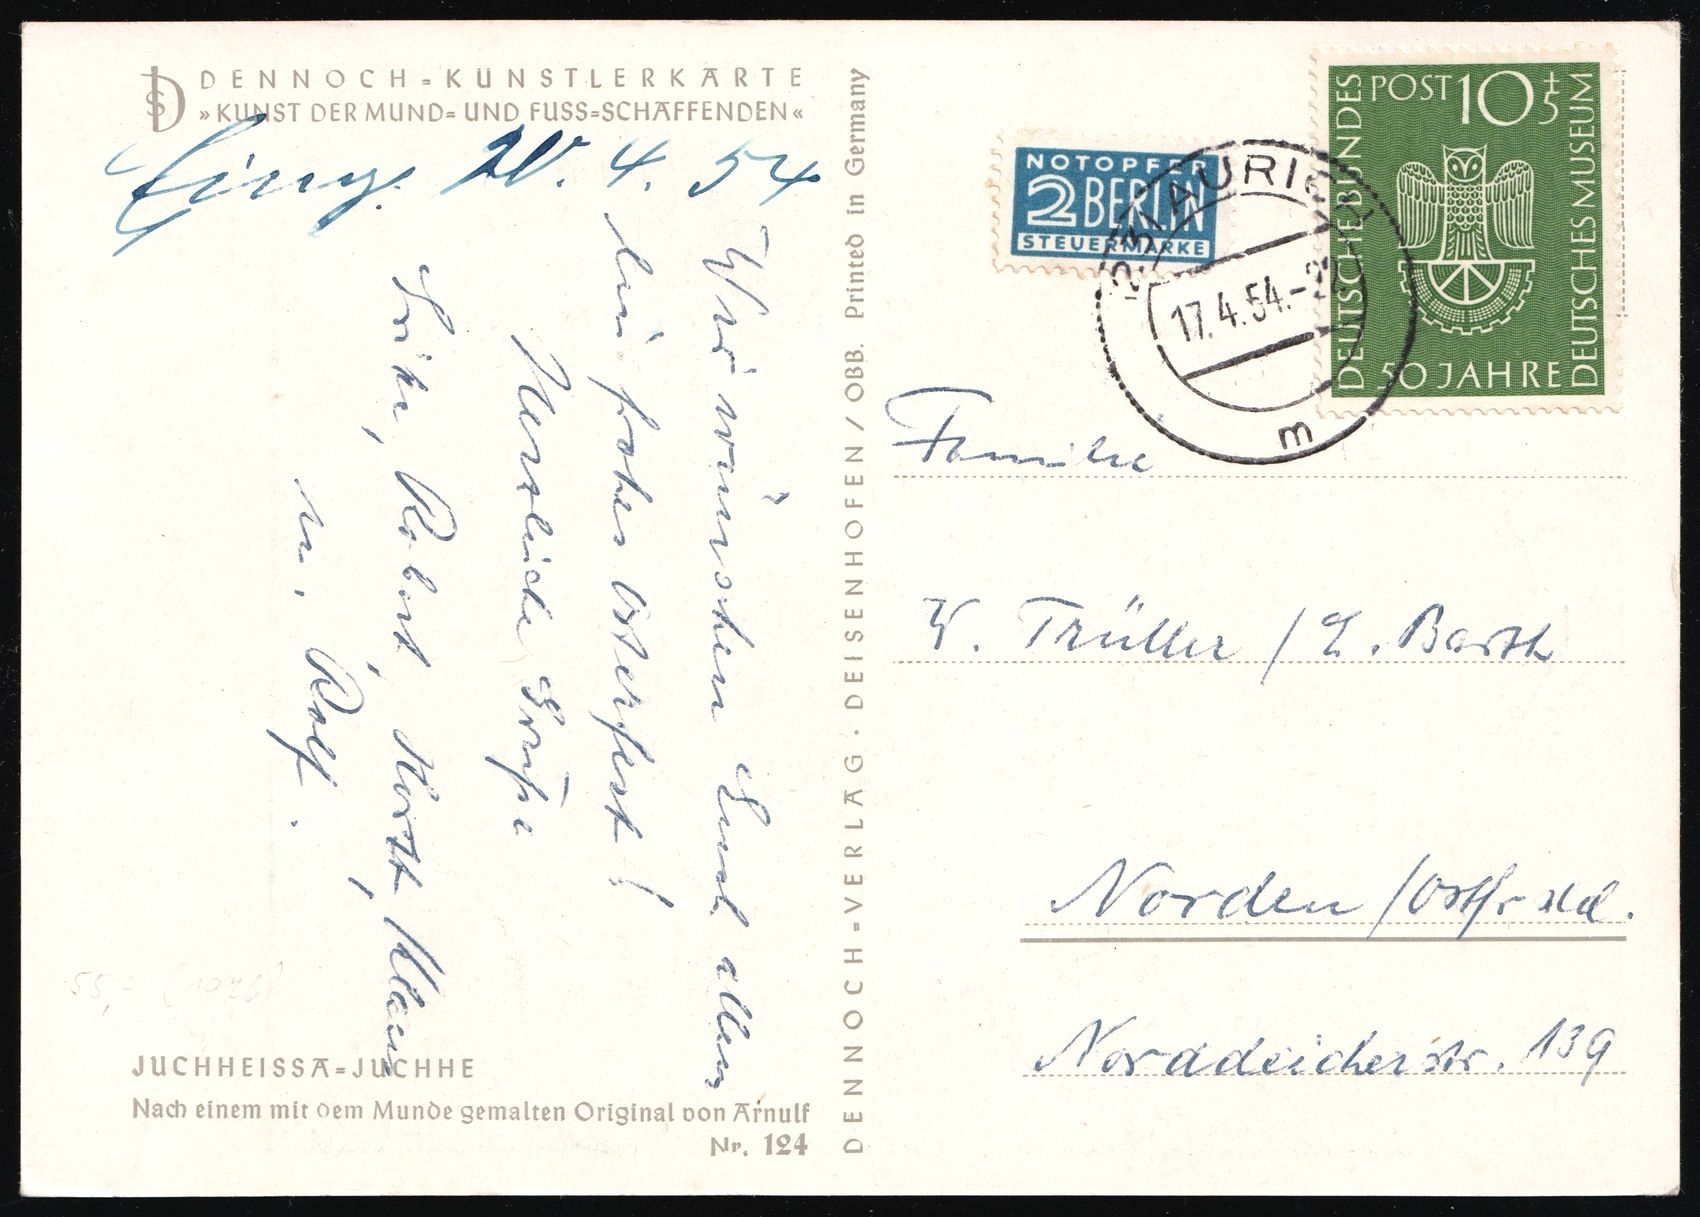 DENNOCH=KÜNSTLERKARTE
»KUNST DER MUND= UND FUSS=SCHAFFENDEN«
Eing. 20. 4. 54
Wir wünschen Euch allen
ein frohes Osterfest!
Herzliche Grüße
Robert, Horst, Klaus
u. Rolf.
JUCHHEISSA=JUCHHE
Nach einem mit dem Munde gemalten Original von Arnulf
Nr. 124
DENNOCH=VERLAG · DEISENHOFEN / OBB. Printed in Germany
NOTOPFER
2 BERLIN
STEUERMARKE
(23) AURICH
17.4.54.-22
m
DEUTSCHE BUNDES
POST 10+5
DEUTSCHES MUSEUM
50 JAHRE
Familie
W. Trüller / E. Barth
Norden /Ostfrsld.
Norddeicherstr. 139
55,-